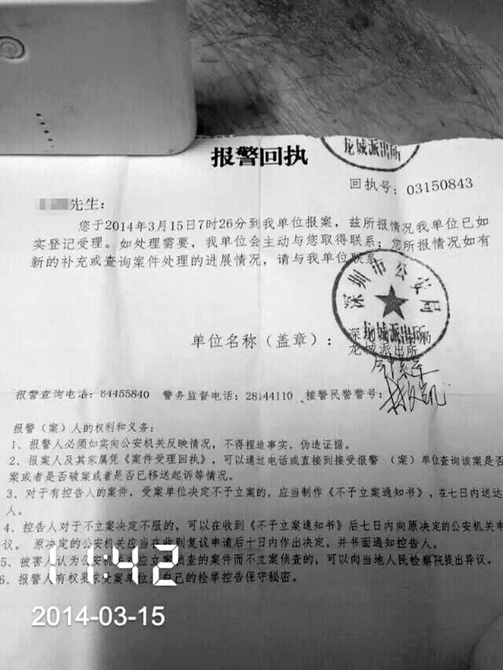 龙城派出所
报警回执
回执号：03150843
先生：
您于2014年3月15日7时26分到我单位报案，兹所报情况我单位已如
实登记受理。如处理需要，我单位会主动与您取得联系；您所报情况如有
新的补充或查询案件处理的进展情况，请与我单位联系
深圳市公安局
龙城派出所
单位名称（盖章）：
龙城派出所
报警查询电话：84455840 警务监督电话：28144110 接警民警警号：
报警（案）人的权利和义务：
1、报警人必须如实向公安机关反映情况，不得捏造事实，伪造证据。
2、报案人及其家属凭《案件受理回执》，可以通过电话或直接到接受报警（案）单位查询该案是否
案或者是否破案或者是否已移送起诉等情况。
3、对于有控告人的案件，受案单位决定不予立案的，应当制作《不予立案通知书》，在七日内送达
人。
4、控告人对于不立案决定不服的，可以在收到《不予立案通知书》后七日内向原决定的公安机关申
议。原决定的公安机关应当在收到复议申请后十日内作出决定，并书面通知控告人。
5、被害人认为公安机关应立案侦查的案件而不立案侦查的，可以向当地人民检察院提出异议。
6、报警人有权要求受案单位为自己的检举控告保守秘密。
11:42
2014-03-15